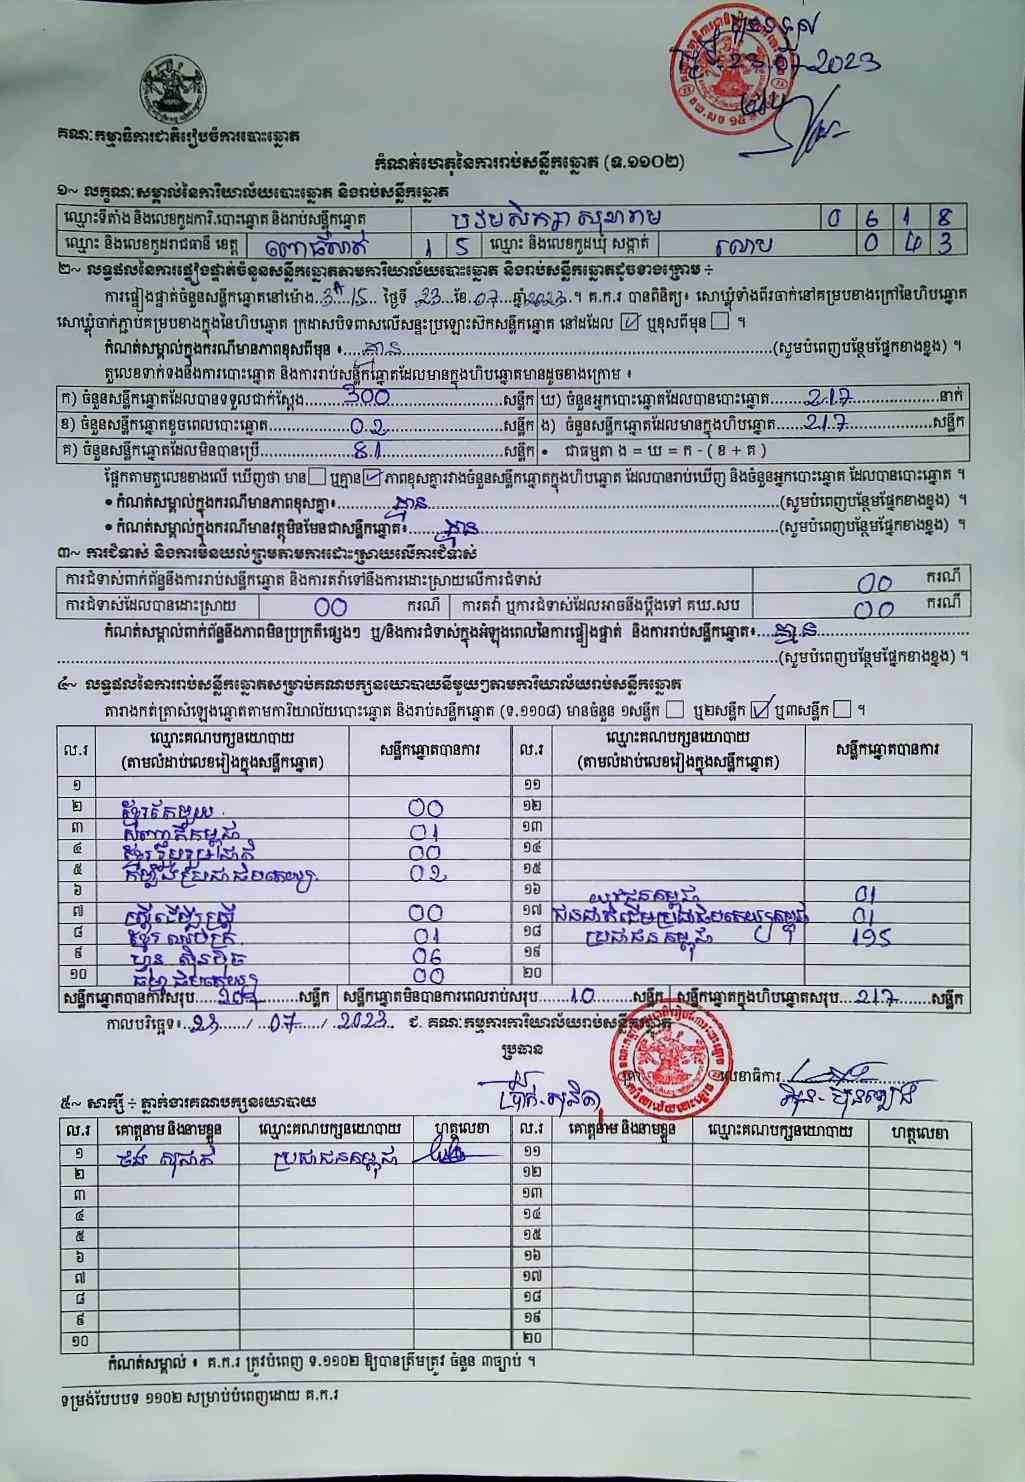 ២៣.០៧-2023
គណៈកម្មាធិការជាតិរៀបចំការបោះឆ្នោត
កំណត់ហេតុនៃការរាប់សន្លឹកឆ្នោត (ទ.១១០២)
១~ លក្ខណៈសម្គាល់នៃការិយាល័យបោះឆ្នោត និងរាប់សន្លឹកឆ្នោត
ឈ្មោះទីតាំង និងលេខកូដការិ.បោះឆ្នោត និងរាប់សន្លឹកឆ្នោត បឋមសិក្សា 0 6 1 8
ឈ្មោះ និងលេខកូដរាជធានី ខេត្ត ពោធិ៍សាត់ 1 5 ឈ្មោះ និងលេខកូដឃុំ សង្កាត់ 0 4 3
២~ លទ្ធផលនៃការផ្ទៀងផ្ទាត់ចំនួនសន្លឹកឆ្នោតតាមការិយាល័យបោះឆ្នោត និងរាប់សន្លឹកឆ្នោតដូចខាងក្រោម ÷
ការផ្ទៀងផ្ទាត់ចំនួនសន្លឹកឆ្នោតនៅម៉ោង..3..15.. ថ្ងៃទី .23..ខែ.07...ឆ្នាំ2023.។ គ.ក.រ បានពិនិត្យ៖ សោឃ្លុំទាំងពីរចាក់នៅគម្របខាងក្រៅនៃហិបឆ្នោត
សោឃ្លុំចាក់ភ្ជាប់គម្របខាងក្នុងនៃហិបឆ្នោត ក្រដាសបិទពាសលើសន្ទះប្រឡោះស៊កសន្លឹកឆ្នោត នៅដដែល ☑ ឬខុសពីមុន ☐ ។
កំណត់សម្គាល់ក្នុងករណីមានភាពខុសពីមុន ៖....គ្មាន....(សូមបំពេញបន្ថែមផ្នែកខាងខ្នង) ។
តួលេខទាក់ទងនឹងការបោះឆ្នោត និងការរាប់សន្លឹកឆ្នោតដែលមានក្នុងហិបឆ្នោតមានដូចខាងក្រោម ៖
ក) ចំនួនសន្លឹកឆ្នោតដែលបានទទួលជាក់ស្តែង....300....សន្លឹក ឃ) ចំនួនអ្នកបោះឆ្នោតដែលបានបោះឆ្នោត....217....នាក់
ខ) ចំនួនសន្លឹកឆ្នោតខូចពេលបោះឆ្នោត....02....សន្លឹក ង) ចំនួនសន្លឹកឆ្នោតដែលមានក្នុងហិបឆ្នោត....217....សន្លឹក
គ) ចំនួនសន្លឹកឆ្នោតដែលមិនបានប្រើ....81....សន្លឹក • ជាធម្មតា ង = ឃ = ក - ( ខ + គ )
ផ្អែកតាមតួលេខខាងលើ ឃើញថា មាន ☐ ឬគ្មាន ☑ ភាពខុសគ្នារវាងចំនួនសន្លឹកឆ្នោតក្នុងហិបឆ្នោត ដែលបានរាប់ឃើញ និងចំនួនអ្នកបោះឆ្នោត ដែលបានបោះឆ្នោត ។
• កំណត់សម្គាល់ក្នុងករណីមានភាពខុសគ្នា៖....គ្មាន....(សូមបំពេញបន្ថែមផ្នែកខាងខ្នង) ។
• កំណត់សម្គាល់ក្នុងករណីមានវត្ថុមិនមែនជាសន្លឹកឆ្នោត៖....គ្មាន....(សូមបំពេញបន្ថែមផ្នែកខាងខ្នង) ។
៣~ ការជំទាស់ និងការមិនយល់ព្រមតាមការដោះស្រាយលើការជំទាស់
ការជំទាស់ពាក់ព័ន្ធនឹងការរាប់សន្លឹកឆ្នោត និងការតវ៉ាទៅនឹងការដោះស្រាយលើការជំទាស់ 00 ករណី
ការជំទាស់ដែលបានដោះស្រាយ 00 ករណី ការតវ៉ា ឬការជំទាស់ដែលអាចនឹងប្តឹងទៅ គឃ.សប 00 ករណី
កំណត់សម្គាល់ពាក់ព័ន្ធនឹងភាពមិនប្រក្រតីផ្សេងៗ ឬ/និងការជំទាស់ក្នុងអំឡុងពេលនៃការផ្ទៀងផ្ទាត់ និងការរាប់សន្លឹកឆ្នោត៖....គ្មាន....
....(សូមបំពេញបន្ថែមផ្នែកខាងខ្នង) ។
៤~ លទ្ធផលនៃការរាប់សន្លឹកឆ្នោតសម្រាប់គណបក្សនយោបាយនីមួយៗតាមការិយាល័យរាប់សន្លឹកឆ្នោត
តារាងកត់ត្រាសំឡេងឆ្នោតតាមការិយាល័យបោះឆ្នោត និងរាប់សន្លឹកឆ្នោត (ទ.១១០៨) មានចំនួន ១សន្លឹក ☐ ឬ២សន្លឹក ☑ ឬ៣សន្លឹក ☐ ។
ល.រ ឈ្មោះគណបក្សនយោបាយ (តាមលំដាប់លេខរៀងក្នុងសន្លឹកឆ្នោត) សន្លឹកឆ្នោតបានការ ល.រ ឈ្មោះគណបក្សនយោបាយ (តាមលំដាប់លេខរៀងក្នុងសន្លឹកឆ្នោត) សន្លឹកឆ្នោតបានការ
១ ១១
២ ខ្មែរតែមួយ 00 ១២
៣ សញ្ជាតិកម្ពុជា 01 ១៣
៤ ខ្មែររួបរួមជាតិ 00 ១៤
៥ ប្រជាធិបតេយ្យ 02 ១៥
៦ ១៦ យុវជនកម្ពុជា 01
៧ ស្ត្រីដើម្បីស្ត្រី 00 ១៧ ជនជាតិដើមប្រជាធិបតេយ្យកម្ពុជា 01
៨ ខ្មែរ 01 ១៨ ប្រជាជនកម្ពុជា 195
៩ ហ៊្វុនស៊ិនប៉ិច 06 ១៩
១០ ធម្មាធិបតេយ្យ 00 ២០
សន្លឹកឆ្នោតបានការសរុប....207....សន្លឹក សន្លឹកឆ្នោតមិនបានការពេលរាប់សរុប....10....សន្លឹក សន្លឹកឆ្នោតក្នុងហិបឆ្នោតសរុប....217....សន្លឹក
កាលបរិច្ឆេទ៖..23..../..07..../..2023. ជ. គណៈកម្មការការិយាល័យរាប់សន្លឹកឆ្នោត
ប្រធាន
លេខាធិការ
៥~ សាក្សី ÷ ភ្នាក់ងារគណបក្សនយោបាយ
ល.រ គោត្តនាម និងនាមខ្លួន ឈ្មោះគណបក្សនយោបាយ ហត្ថលេខា ល.រ គោត្តនាម និងនាមខ្លួន ឈ្មោះគណបក្សនយោបាយ ហត្ថលេខា
១ ប្រជាជនកម្ពុជា ១១
២ ១២
៣ ១៣
៤ ១៤
៥ ១៥
៦ ១៦
៧ ១៧
៨ ១៨
៩ ១៩
១០ ២០
កំណត់សម្គាល់ ៖ គ.ក.រ ត្រូវបំពេញ ទ.១១០២ ឱ្យបានត្រឹមត្រូវ ចំនួន ៣ច្បាប់ ។
ទម្រង់បែបបទ ១១០២ សម្រាប់បំពេញដោយ គ.ក.រ